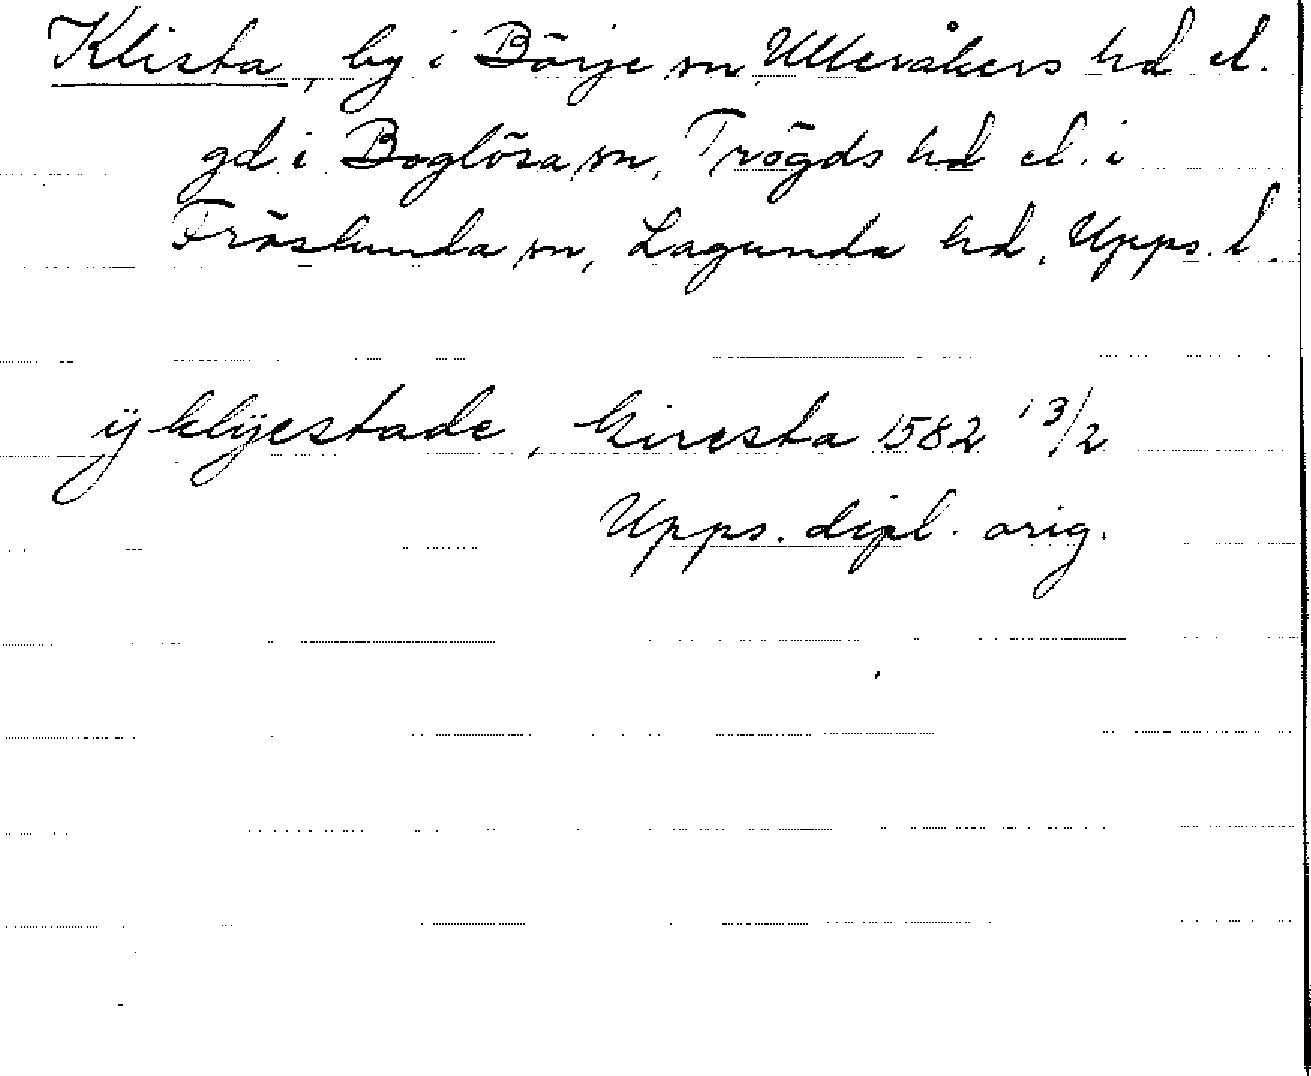 Klista, by i Börje sn, Ulleråkers hd el.
gd i Boglösa sn, Trögds hd el. i
Fröslunda sn, Lagunda hd, Upps. l.
ij klijestade, Giresta 1582 13/2
Upps. dipl. orig.